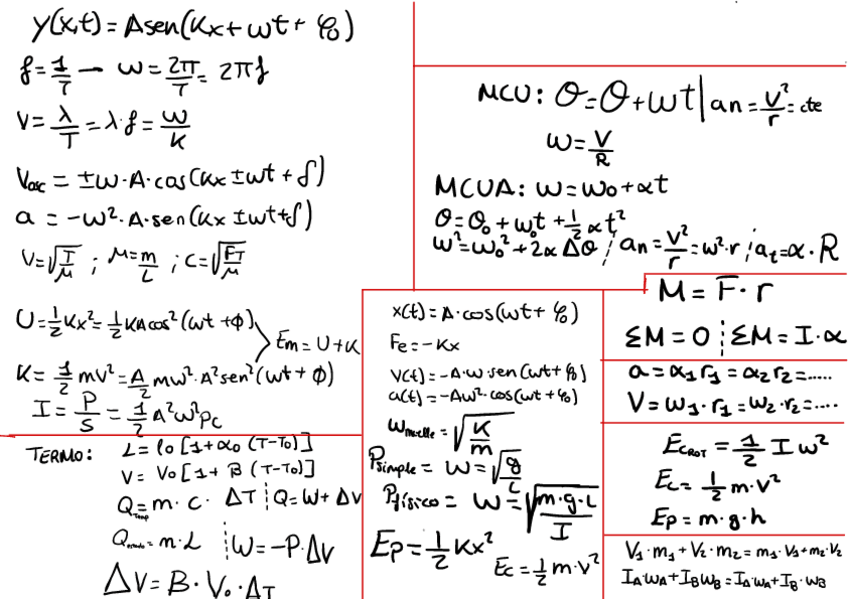 y(x,t) = A sen(Kx + ωt + φ₀)
f = 1/T — ω = 2π/T = 2πf
V = λ/T = λ·f = ω/K
Vosc = ±ω·A·cos(Kx ± ωt + δ)
a = -ω²·A·sen(Kx ± ωt + δ)
V = √(T/μ) ; μ = m/L ; c = √(FT/μ)
U = 1/2 Kx² = 1/2 KA cos²(ωt + φ)
Em = U + K
K = 1/2 mV² = 1/2 mω²·A² sen²(ωt + φ)
I = P/S = 1/2 A²ω²ρc
TERMO: L = l₀[1 + α₀(T-T₀)]
V = V₀[1 + B(T-T₀)]
QTemp = m · c · ΔT | Q = W + ΔV
Qestado = m·L | W = -P·ΔV
ΔV = B·V₀·ΔT
MCU: θ = θ + ωt | an = V²/r = cte
ω = V/R
MCUA: ω = ω₀ + αt
θ = θ₀ + ω₀t + 1/2 αt²
ω² = ω₀² + 2αΔθ ; an = V²/r = ω²·r ; at = α·R
x(t) = A·cos(ωt + φ₀)
Fe = -Kx
V(t) = -A·ω·sen(ωt + φ₀)
a(t) = -Aω²·cos(ωt + φ₀)
ωmuelle = √(K/m)
Psimple = ω = √(g/L)
Pfísico = ω = √(m·g·L/I)
Ep = 1/2 Kx²
Ec = 1/2 m·v²
M = F · r
ΣM = 0 ¦ ΣM = I·α
a = α₁r₁ = α₂r₂ = .....
V = ω₁·r₁ = ω₂·r₂ = ....
ECROT = 1/2 I ω²
Ec = 1/2 m·v²
Ep = m·g·h
V₁·m₁ + V₂·m₂ = m₁·V₁ + m₂·V₂
IA·ωA + IBωB = IA·ωA + IB·ωB